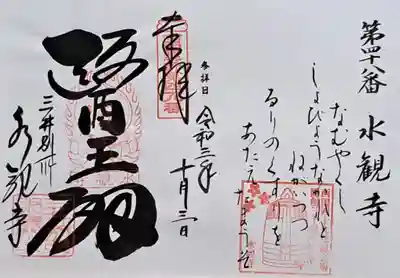 第四十八番 水観寺
なむやくし
しょびょうなかれと
ねがいつつ
るりのくすりを
あたえたまうぞ
奉拝
参拝日
令和三年
十月三日
医王殿
三井別所
水観寺